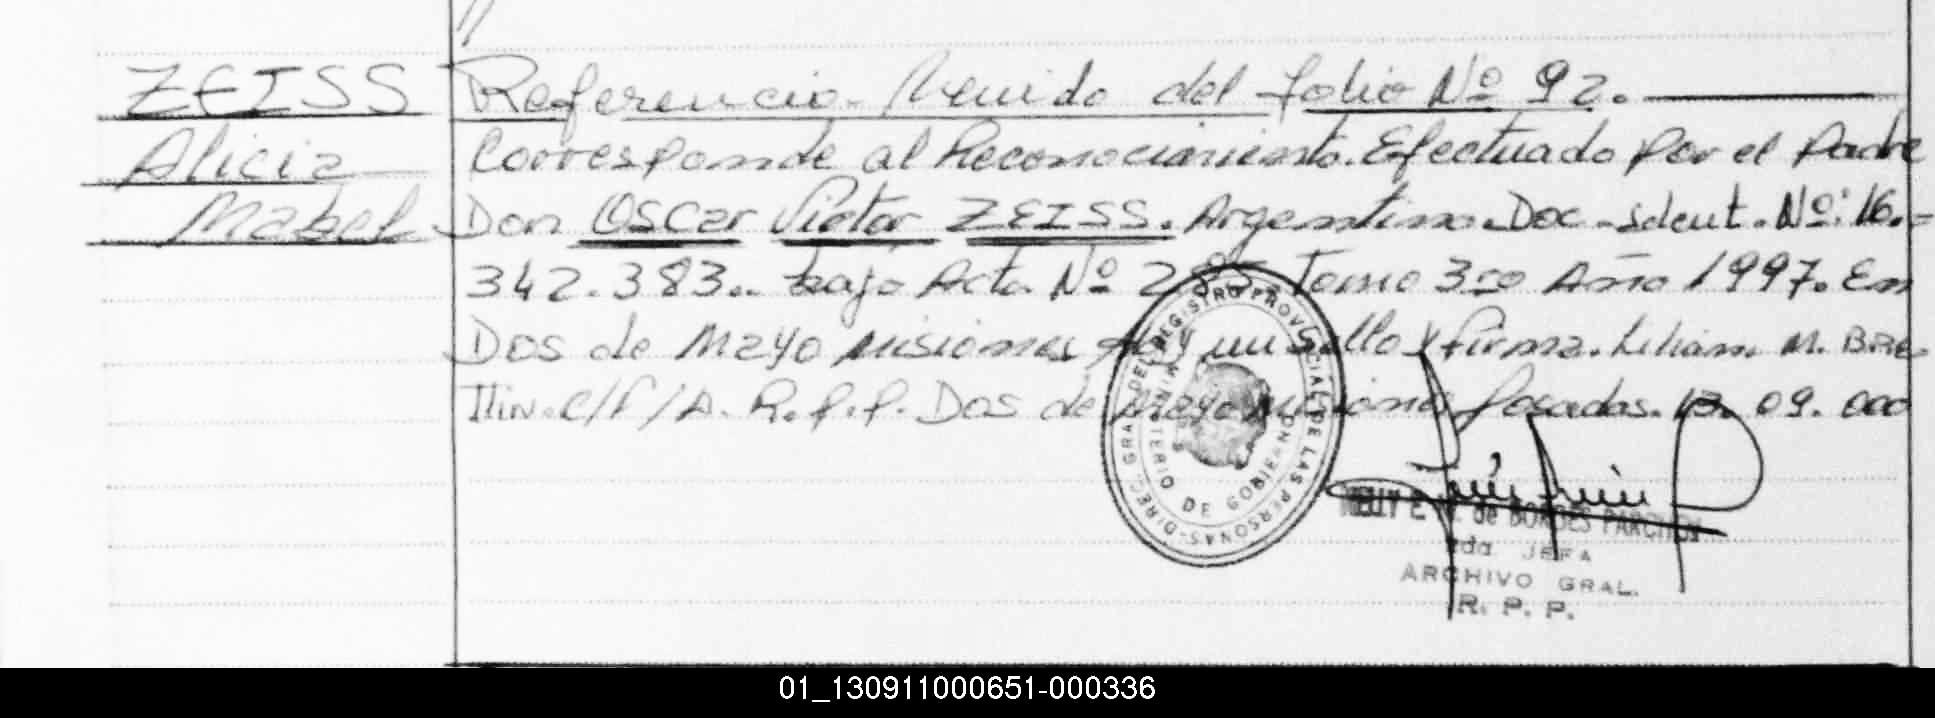 ZEISS
Alicia
Mabel
Referencia. Venido del folio Nº 92.
Corresponde al Reconocimiento. Efectuado Por el Padre
Don OSCar Victor ZEISS. Argentino. Doc - ident. Nº: 16.=
342.383.. bajo Acta Nº Tomo 3ro Año 1997. En
Dos de Mayo Misiones Hay un Sello y firma. Lilian. M. BRE-
TTin. C/P/A. R.P.P. Dos de Mayo Misiones Posadas. 13. 09. 000
DIREC. GRAL. DEL REGISTRO PROVINCIAL DE LAS PERSONAS
MINISTERIO DE GOBIERNO
NELLY E. de BORDES
2da. JEFA
ARCHIVO GRAL.
R. P. P.
01_130911000651-000336